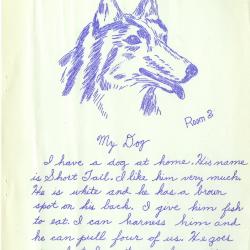 Room 3
My Dog
I have a dog at home. His name
is Short Tail. I like him very much.
He is white and he has a brown
spot on his back. I give him fish
to eat. I can harness him and
he can pull four of us. He gets